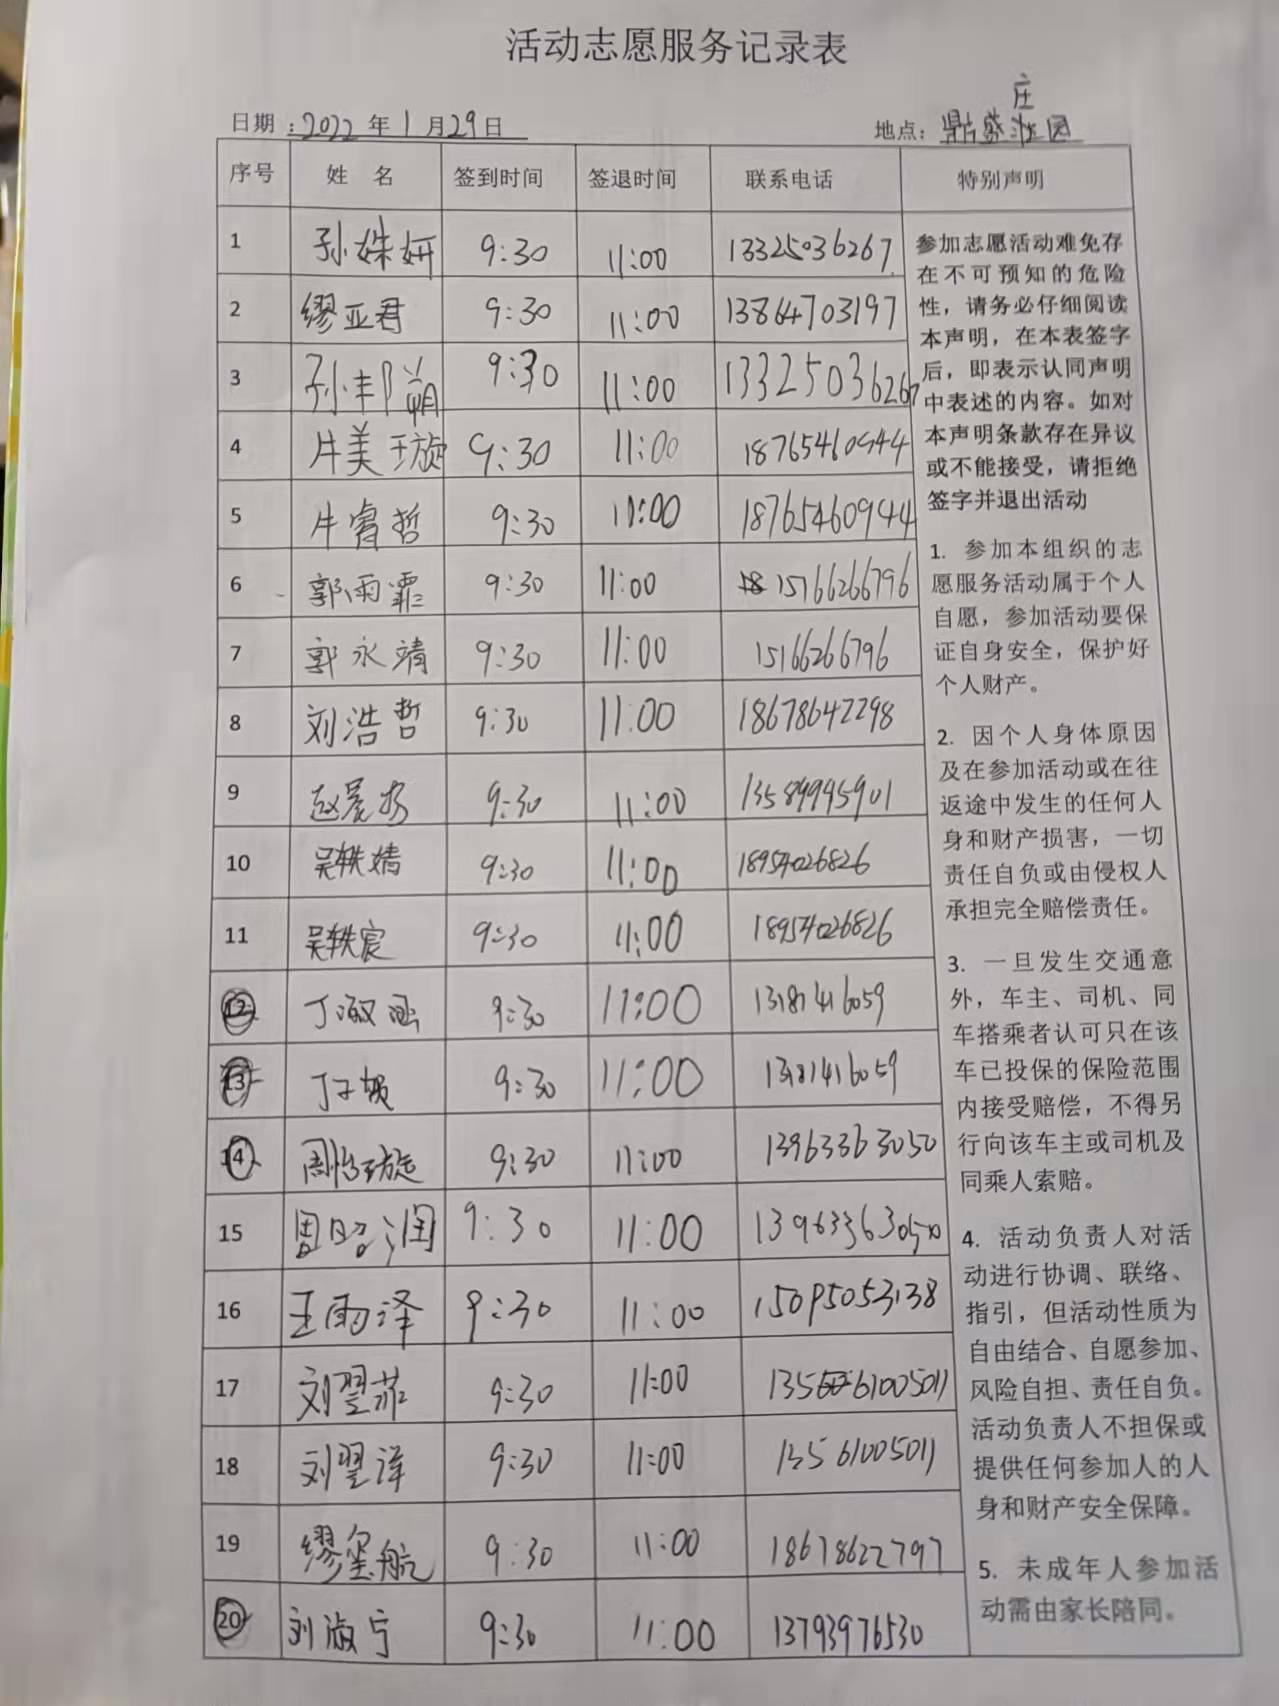 活动志愿服务记录表
日期：2022年1月29日 地点：鼎盛庄园
序号 姓 名 签到时间 签退时间 联系电话 特别声明
1 孙姝妍 9:30 11:00 13325036267
2 缪亚君 9:30 11:00 13864703197
3 9:30 11:00 13325036267
4 牛美璇 9:30 11:00 18765460944
5 牛睿哲 9:30 11:00 18765460944
6 郭雨霏 9:30 11:00 15166266796
7 郭永靖 9:30 11:00 15166266796
8 刘浩哲 9:30 11:00 18678642298
9 9:30 11:00 13589995901
10 吴轶婧 9:30 11:00 18954026826
11 吴轶宸 9:30 11:00 18954026826
12 丁淑涵 9:30 11:00 13181416059
13 9:30 11:00 13181416059
14 周怡璇 9:30 11:00 13963363050
15 周昭润 9:30 11:00 13963363050
16 王雨泽 9:30 11:00 15095053138
17 刘翌菲 9:30 11:00 13561005011
18 刘翌洋 9:30 11:00 13561005011
19 缪玺航 9:30 11:00 18678622797
20 刘淑宁 9:30 11:00 13793976530
参加志愿活动难免存
在不可预知的危险
性，请务必仔细阅读
本声明，在本表签字
后，即表示认同声明
中表述的内容。如对
本声明条款存在异议
或不能接受，请拒绝
签字并退出活动
1. 参加本组织的志
愿服务活动属于个人
自愿，参加活动要保
证自身安全，保护好
个人财产。
2. 因个人身体原因
及在参加活动或在往
返途中发生的任何人
身和财产损害，一切
责任自负或由侵权人
承担完全赔偿责任。
3. 一旦发生交通意
外，车主、司机、同
车搭乘者认可只在该
车已投保的保险范围
内接受赔偿，不得另
行向该车主或司机及
同乘人索赔。
4. 活动负责人对活
动进行协调、联络、
指引，但活动性质为
自由结合、自愿参加、
风险自担、责任自负。
活动负责人不担保或
提供任何参加人的人
身和财产安全保障。
5. 未成年人参加活
动需由家长陪同。